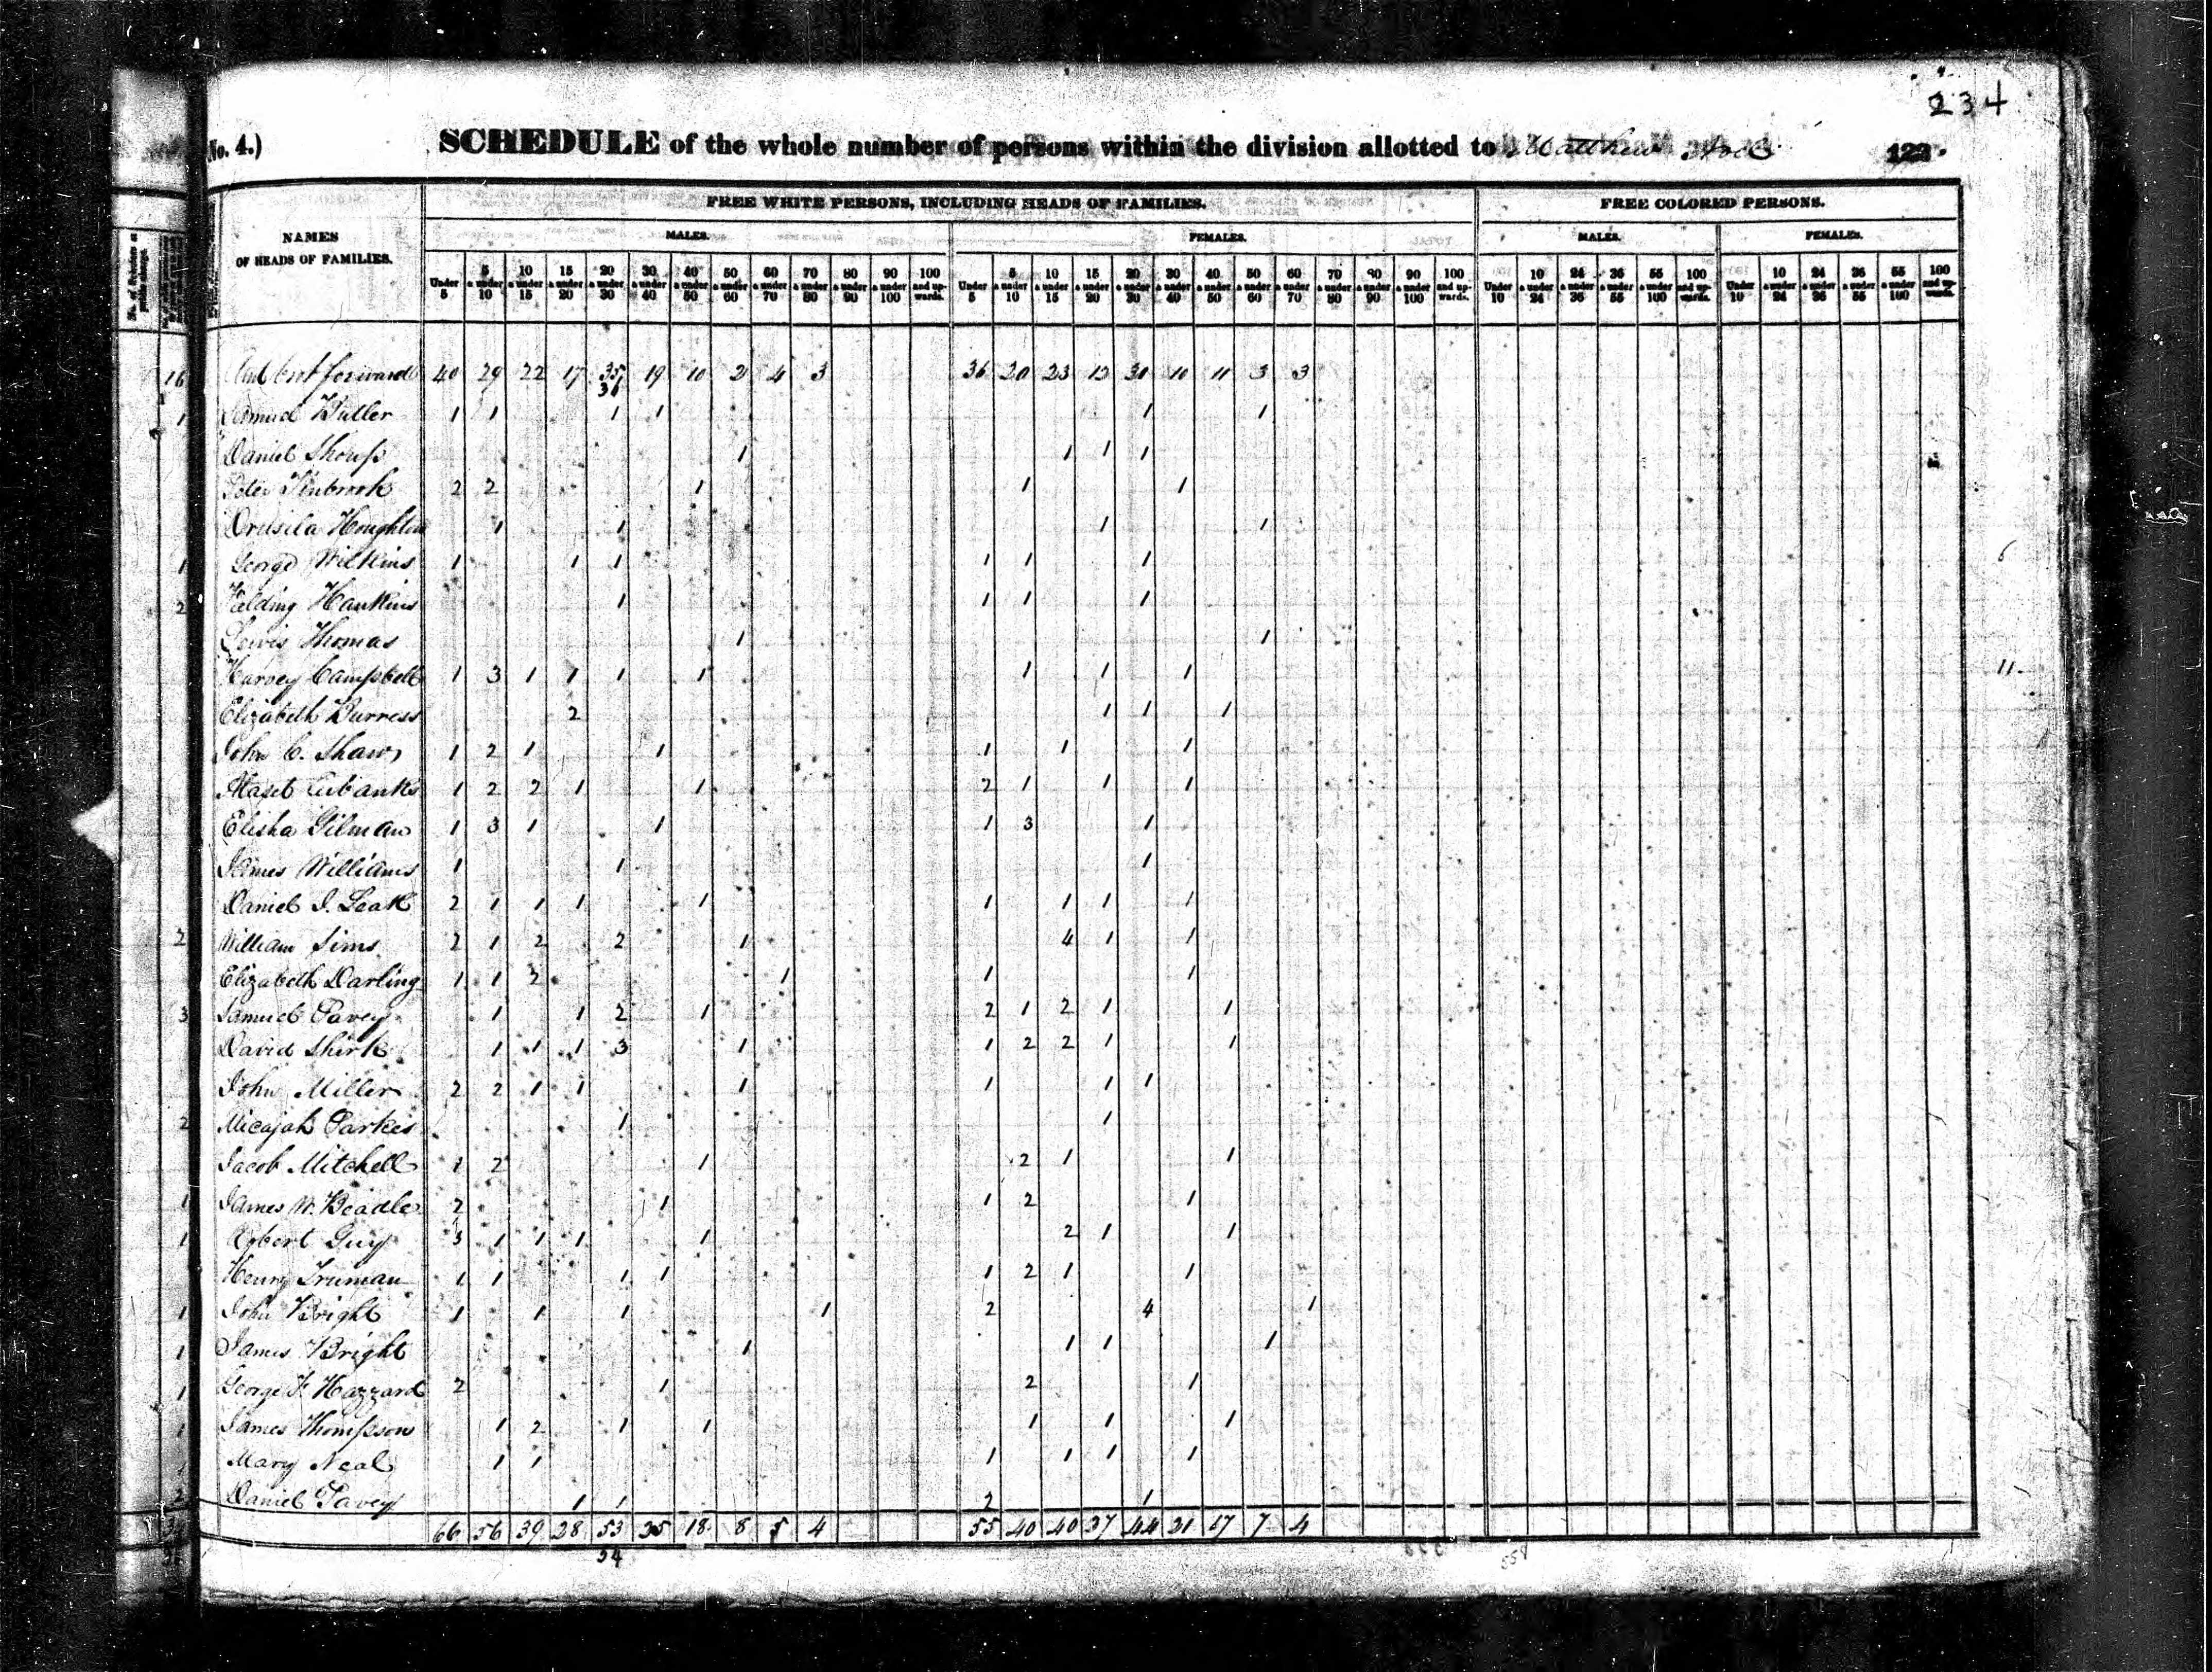 234
No. 4.) SCHEDULE of the whole number of persons within the division allotted to Matthew 122.
FREE WHITE PERSONS, INCLUDING HEADS OF FAMILIES. FREE COLORED PERSONS.
NAMES OF HEADS OF FAMILIES. MALES. FEMALES. MALES. FEMALES.
Under 5 5 & under 10 10 & under 15 15 & under 20 20 & under 30 30 & under 40 40 & under 50 50 & under 60 60 & under 70 70 & under 80 80 & under 90 90 & under 100 100 and upwards. Under 5 5 & under 10 10 & under 15 15 & under 20 20 & under 30 30 & under 40 40 & under 50 50 & under 60 60 & under 70 70 & under 80 80 & under 90 90 & under 100 100 and upwards. Under 10 10 & under 24 24 & under 36 36 & under 55 55 & under 100 100 and upwards. Under 10 10 & under 24 24 & under 36 36 & under 55 55 & under 100 100 and upwards.
16 brot forward 40 29 22 17 35 36 19 10 2 4 3 36 20 23 12 30 10 11 3 3
1 Samuel Butler 1 1 1 1 1 1
Daniel Shoup 1 1 1 1
Peter Tinbrook 2 2 1 1 1
Drusila Houghton 1 1 1 1
1 George Wilkins 1 1 1 1 1 1
2 Fielding Hankins 1 1 1 1
Lewis Thomas 1 1
Harvey Campbell 1 3 1 1 1 1 1 1 1
Elizabeth Burress 2 1 1 1
John C. Shaw 1 2 1 1 1 1 1
Eubanks 1 2 2 1 1 2 1 1 1
Elisha Gilman 1 3 1 1 1 3 1
James Williams 1 1 1
Daniel J. Leak 2 1 1 1 1 1 1 1 1
2 William Sims 2 1 2 2 1 4 1 1
Elizabeth Darling 1 1 2 1 1 1
3 Samuel Pavey 1 1 2 1 2 1 2 1 1
David Shirk 1 1 1 3 1 1 2 2 1 1
John Miller 2 2 1 1 1 1 1 1
2 Micajah Parkes 1 1
Jacob Mitchell 1 2 1 2 1 1
1 James W. Beadle 2 1 1 2 1
1 Robert Guy 3 1 1 1 1 2 1 1
Henry Truman 1 1 1 1 1 2 1 1
1 John Bright 1 1 1 1 2 4 1
1 James Bright 1 1 1 1
1 George F. Hazzard 2 1 2 1
1 James Thompson 1 2 1 1 1 1 1
1 Mary Neal 1 1 1 1 1 1
2 Daniel Pavey 1 1 2 1
66 56 39 28 53 25 18 8 5 4 55 40 40 27 44 21 17 7 4
54
6
11